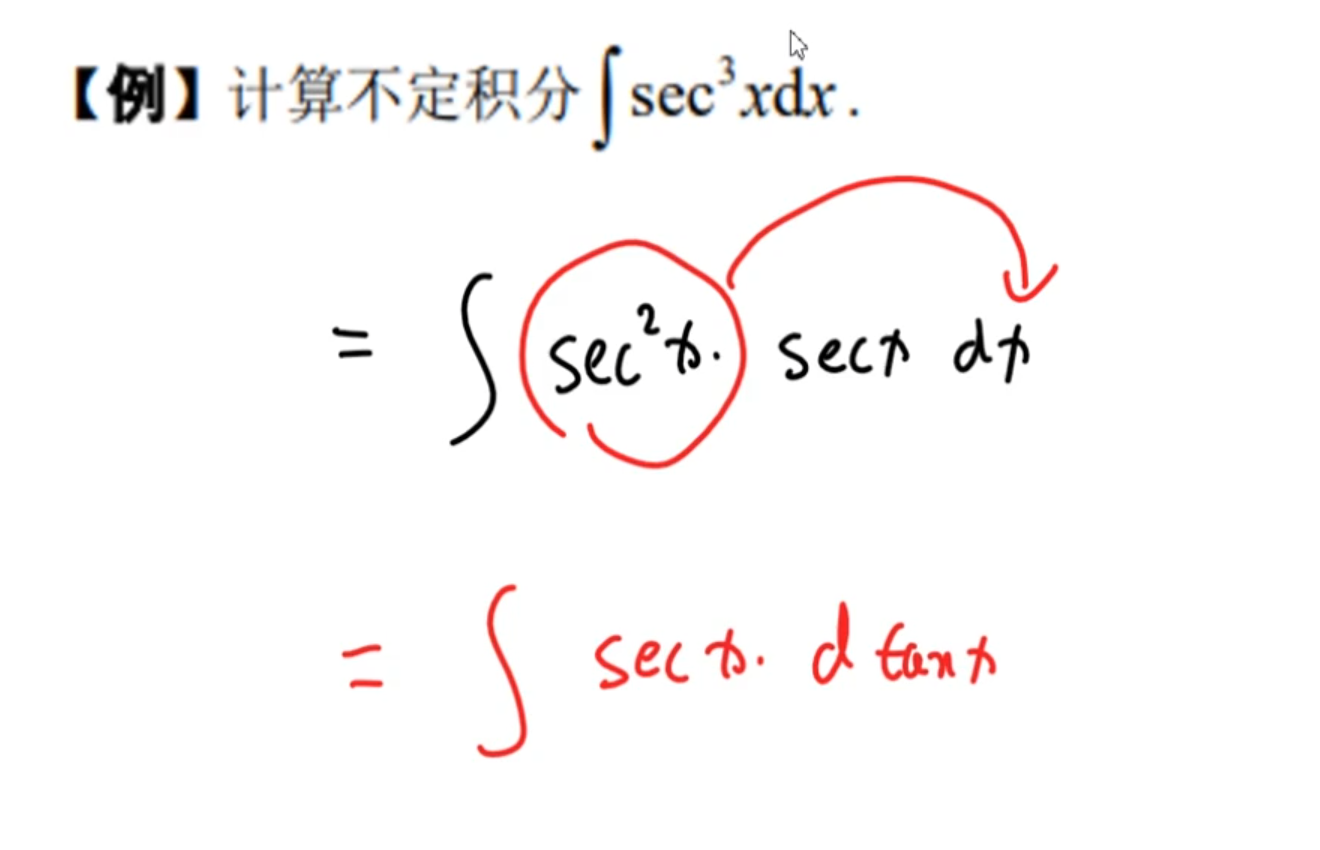 【例】计算不定积分∫sec³xdx.
= ∫ sec²x· secx dx
= ∫ secx· d tanx